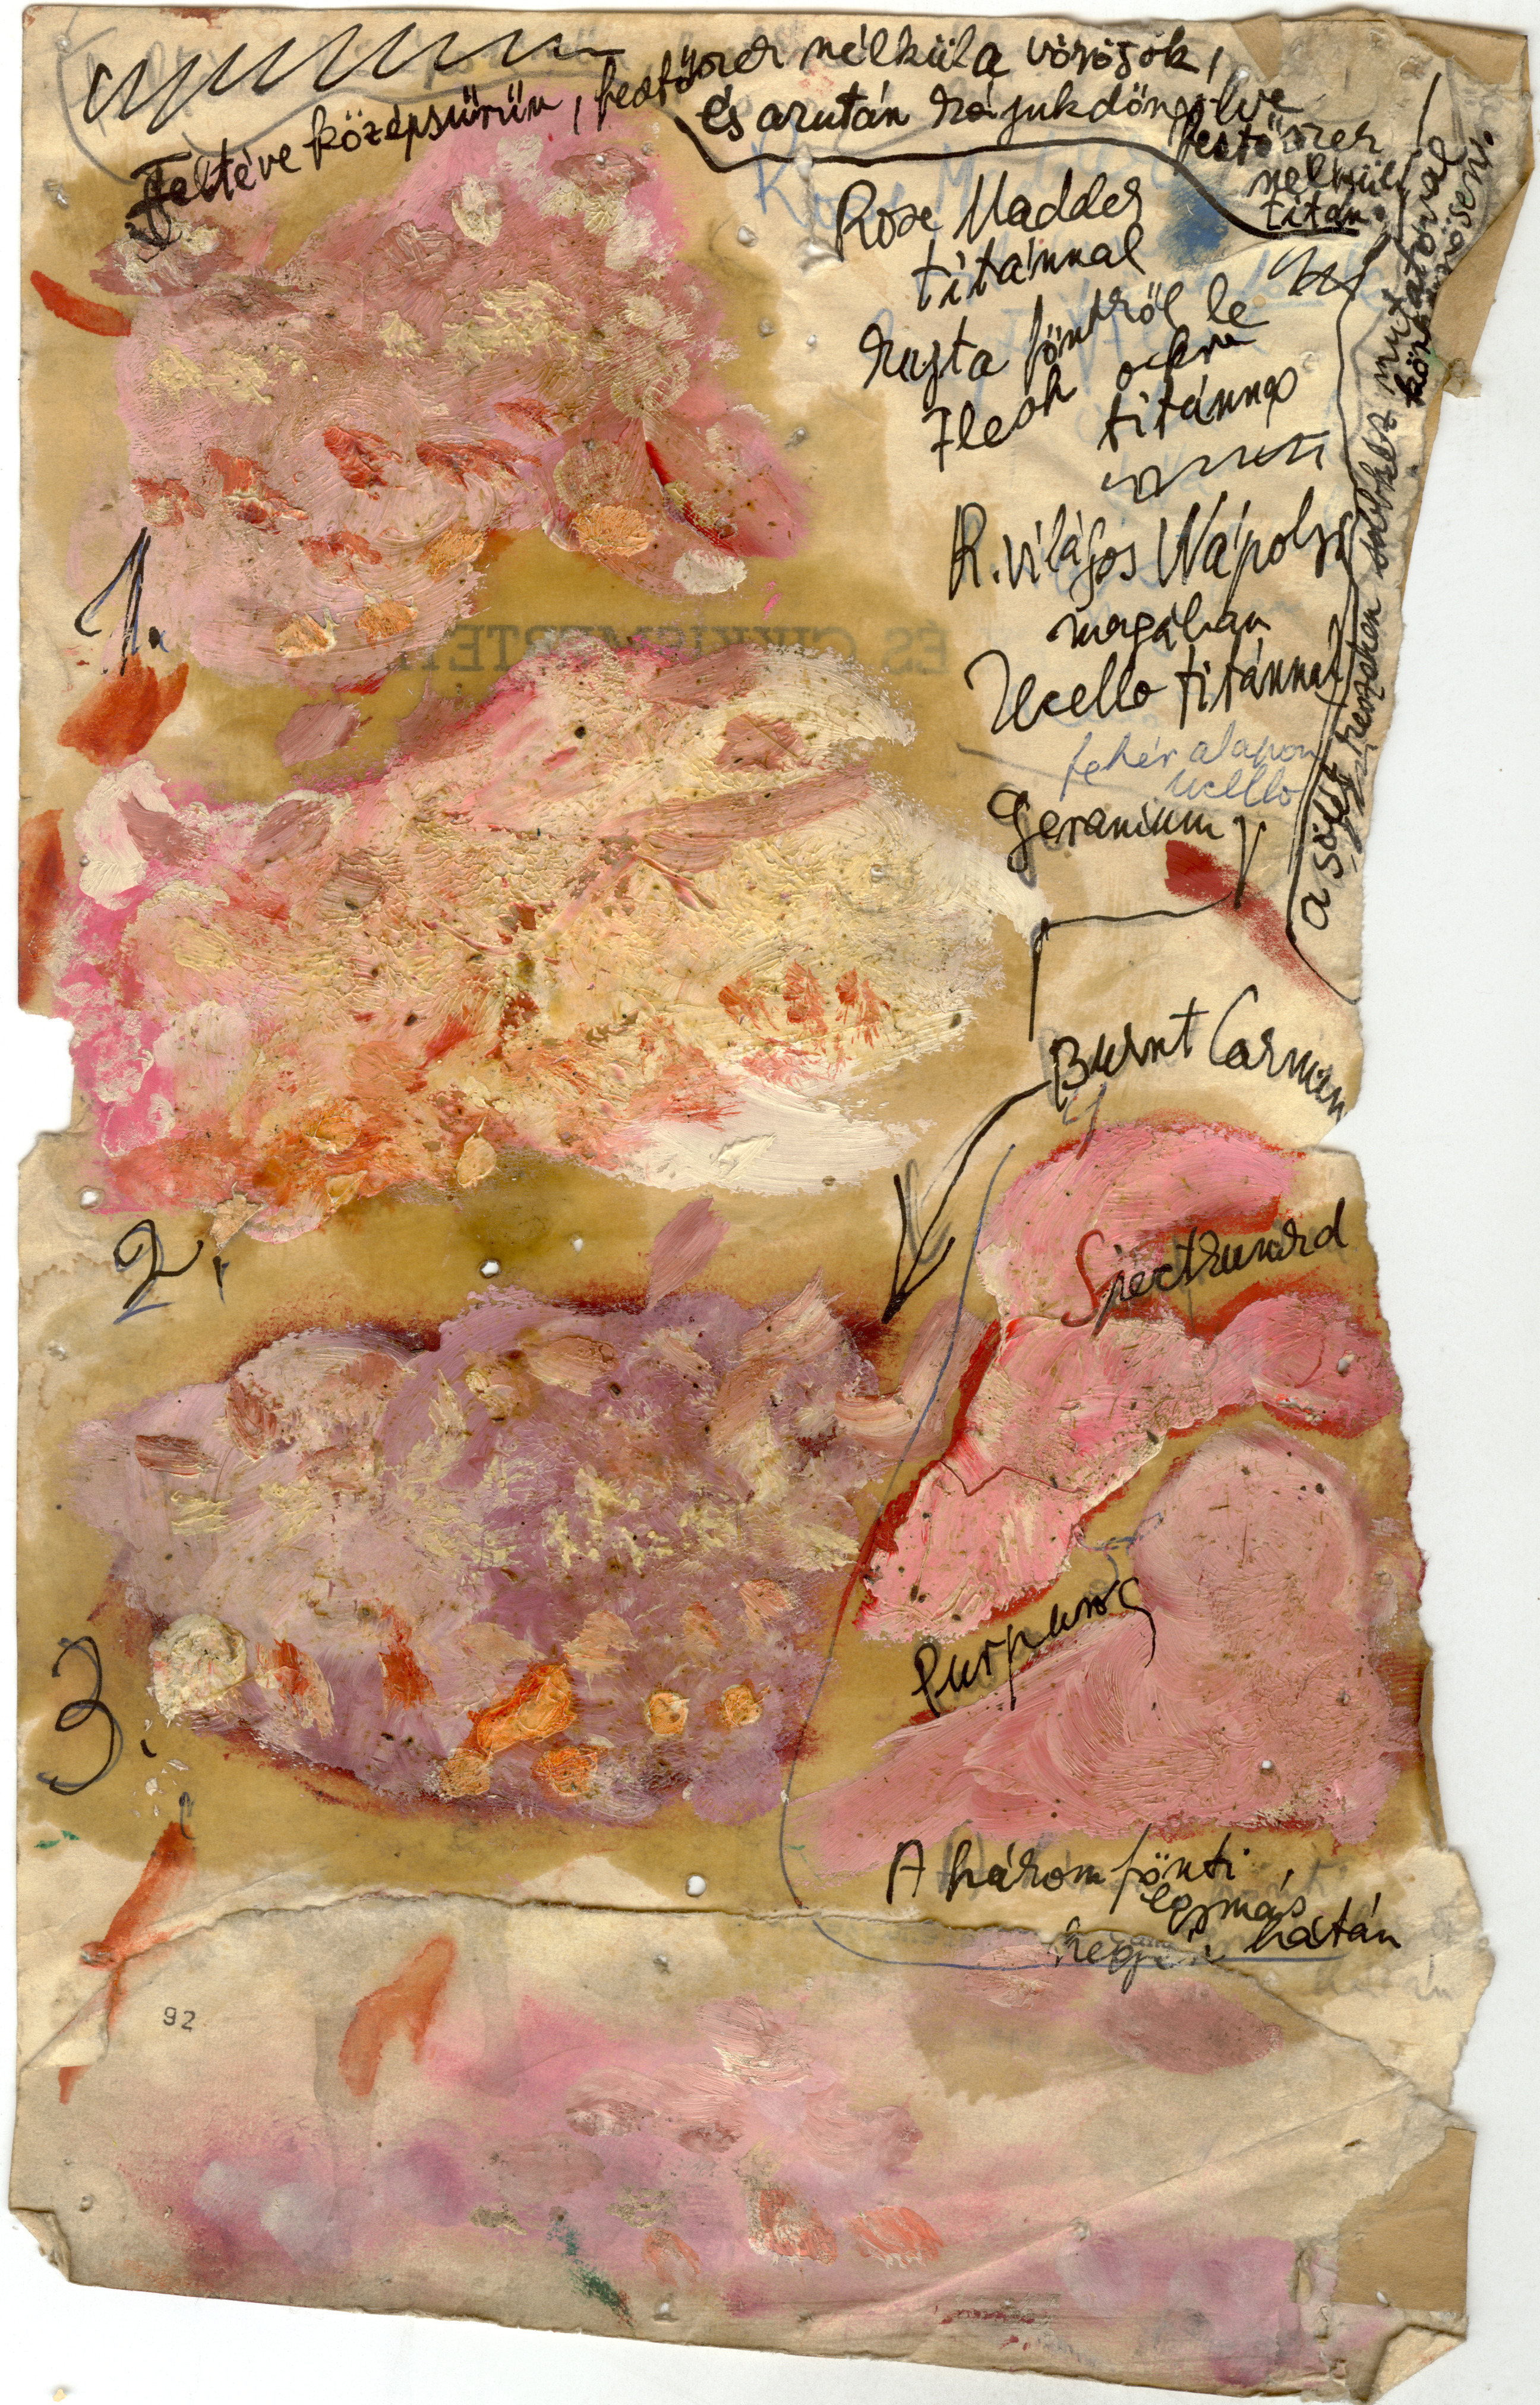 Feltéve középsűrűn, festőszer nélkül a vörösök,
és azután rájuk döngölve
festőszer
nélküli
titán
Rose Madder
titánnal
rajta föntről le
Flesh ochre
titánnal
R. világos Nápolyi
magában
Ucello titánnal
fehér alapon
Ucello
Geranium
a sötét
mutatóval
1.
ÉS CIKKISMERTET
Burnt Carmin
2.
Spectrumrd
3.
Purpuros
A három fönti
egymás
hegyi hátán
92